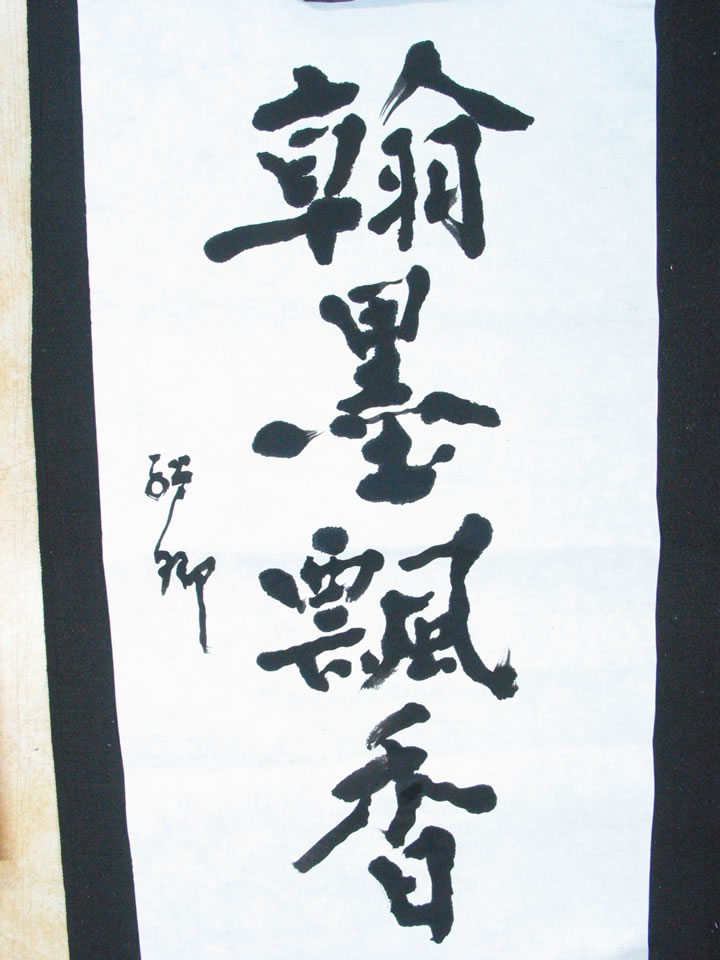 翰墨飄香